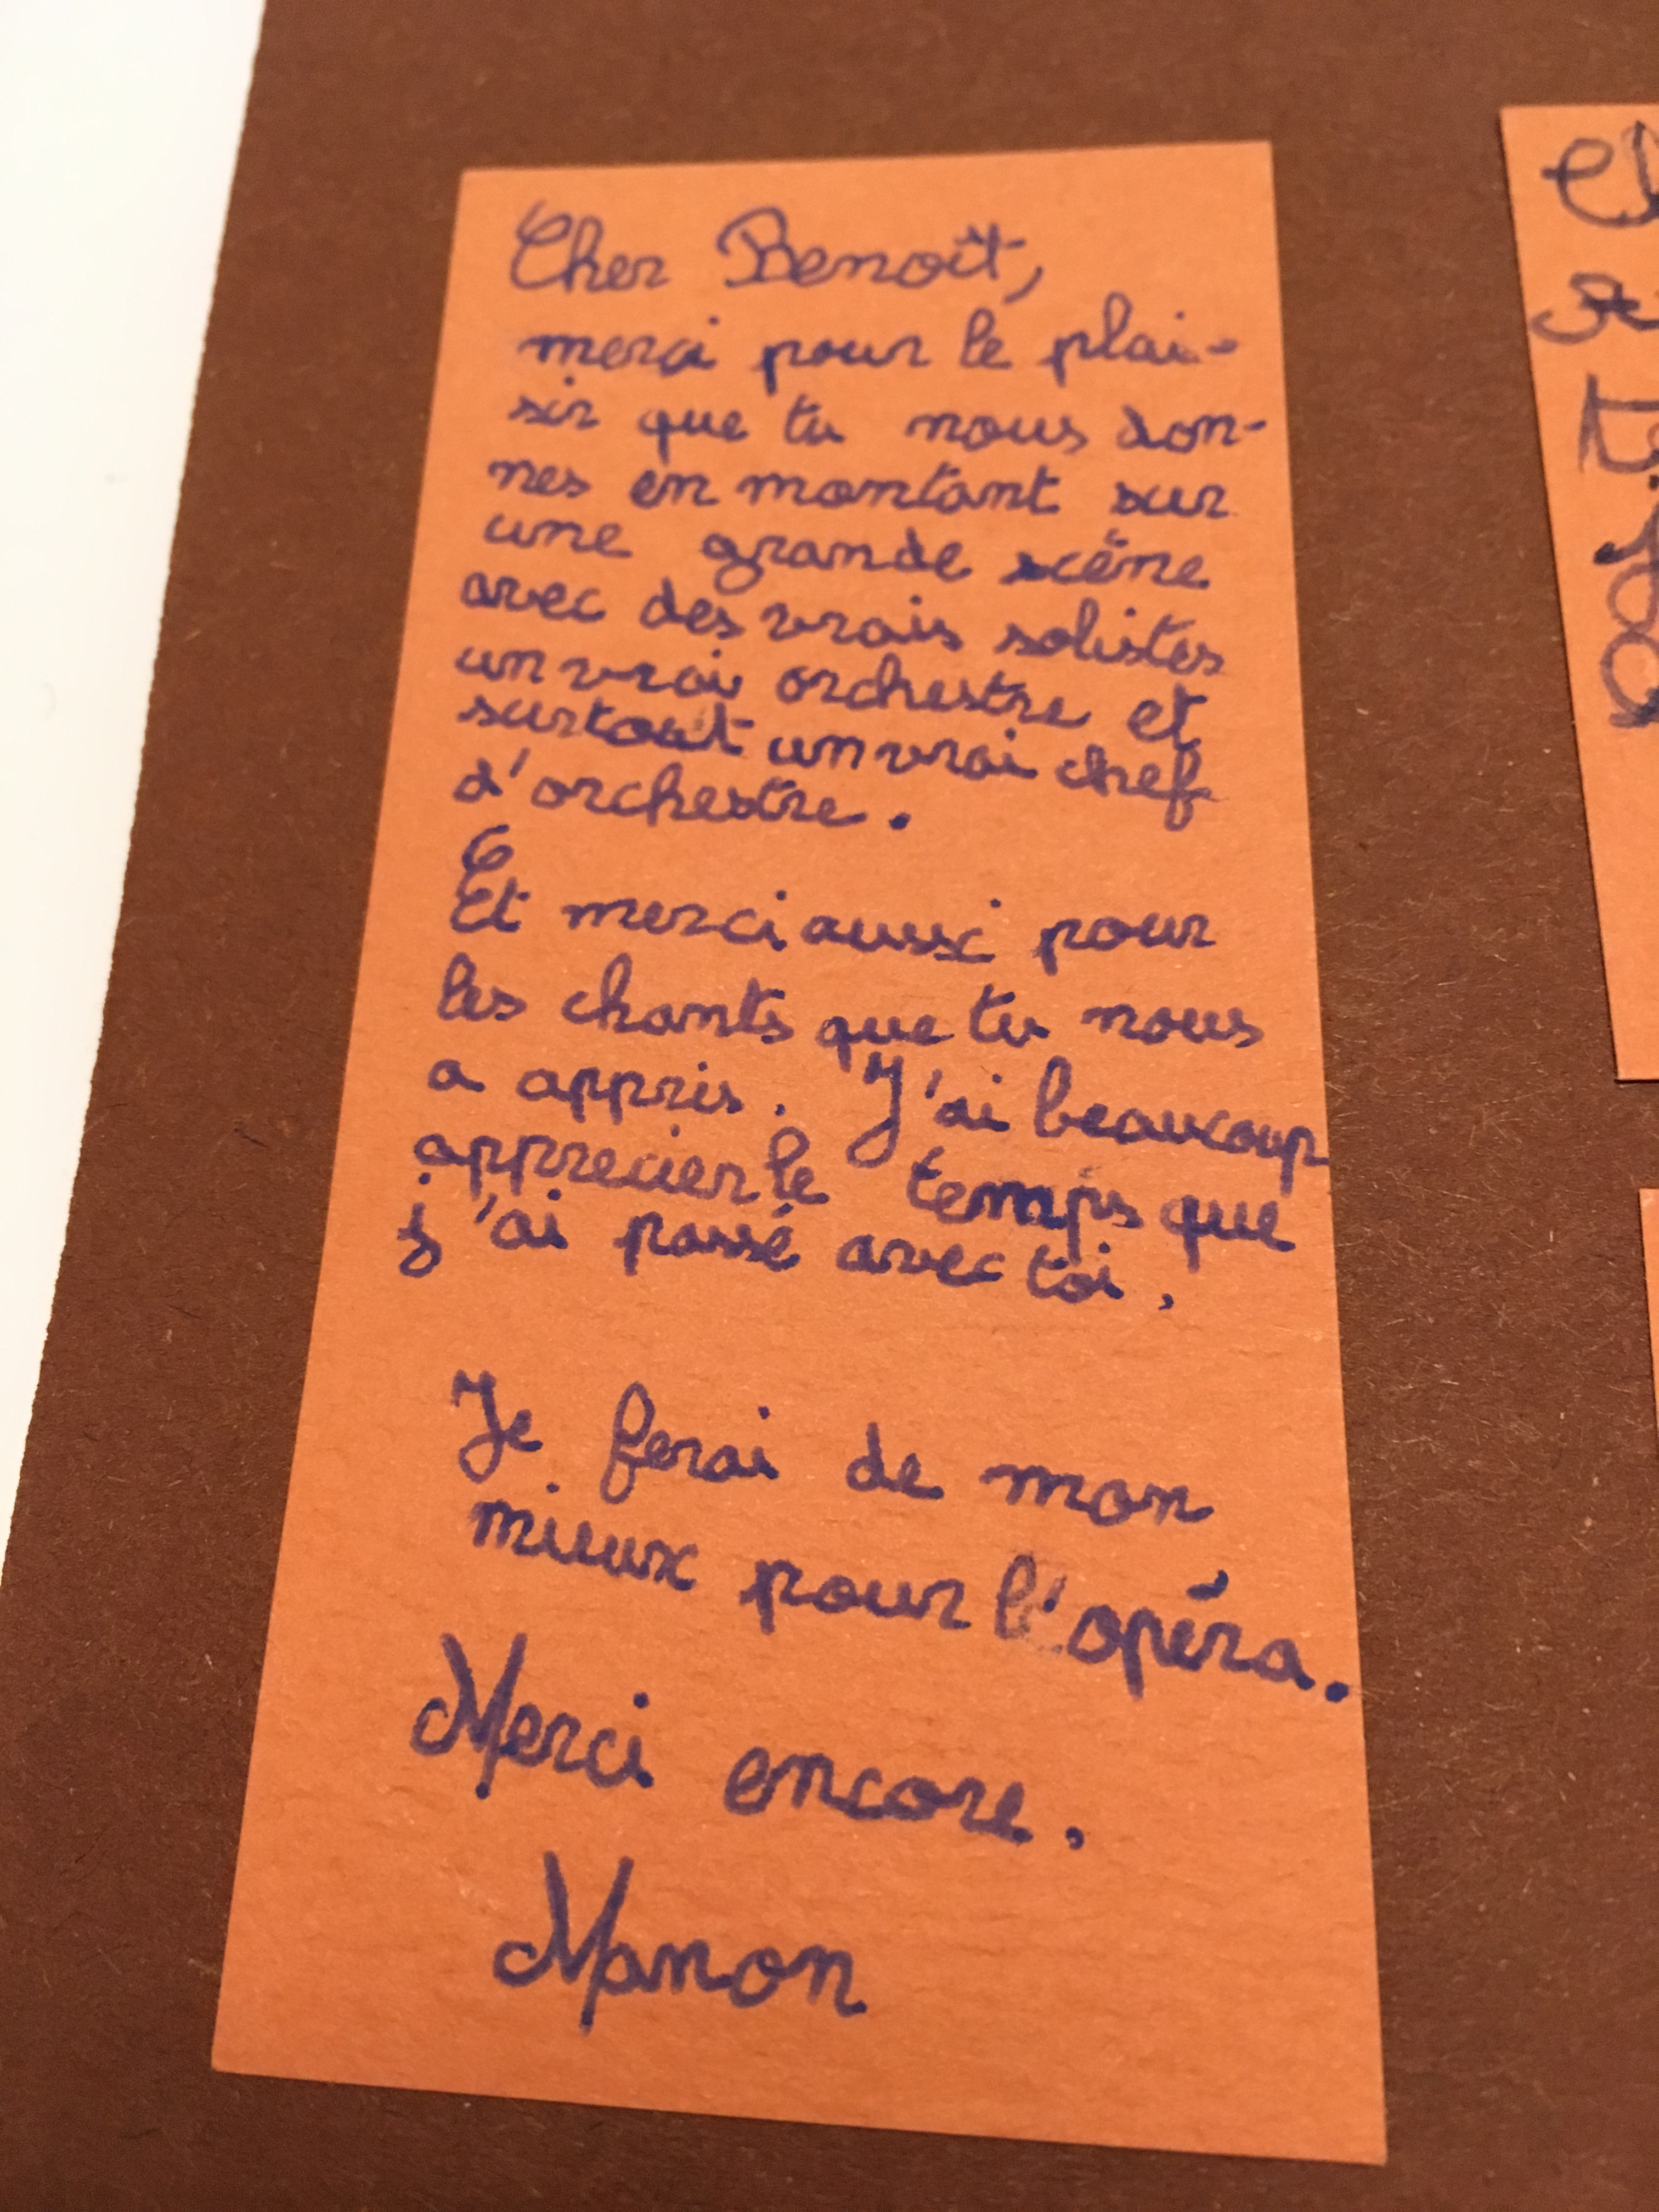 Cher Benoît,
merci pour le plai-
sir que tu nous don-
nes en montant sur
une grande scène
avec des vrais solistes
un vrai orchestre et
surtout un vrai chef
d'orchestre.
Et merci aussi pour
les chants que tu nous
a appris. J'ai beaucoup
apprecier le temps que
j'ai passé avec toi.
Je ferai de mon
mieux pour l'opéra.
Merci encore.
Manon